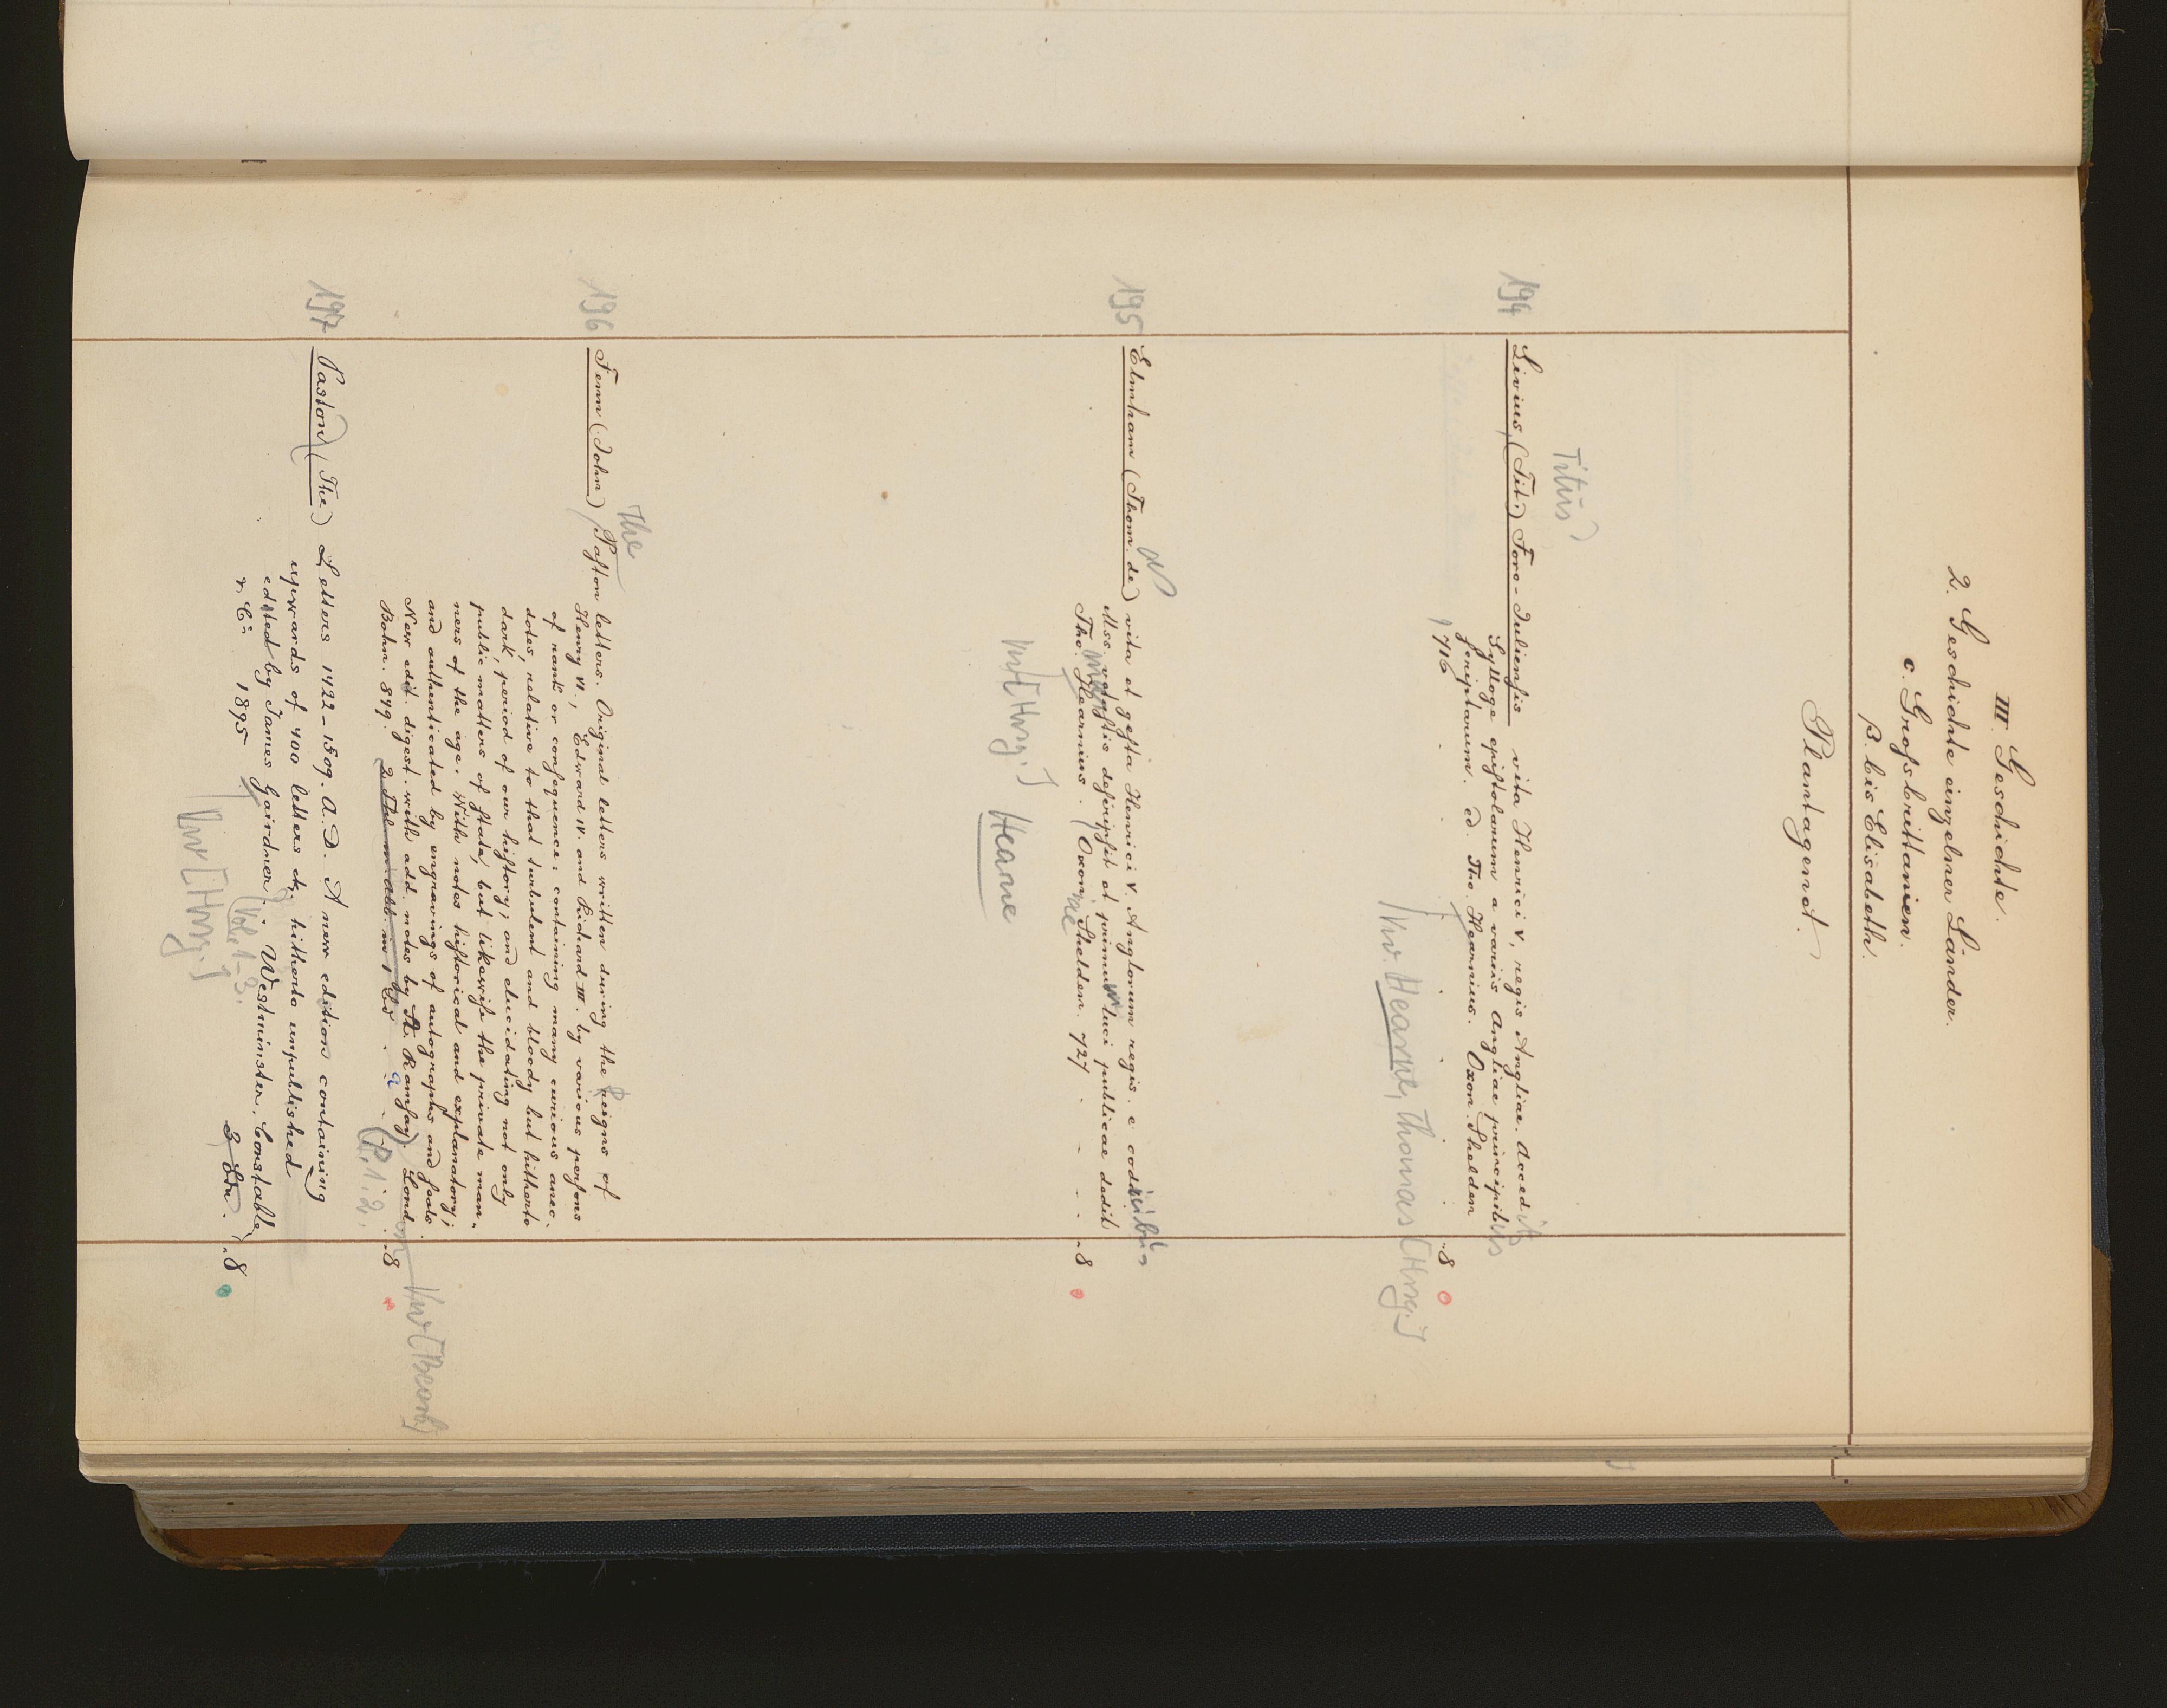 III. Geschichte.
2. Geschichte einzelner Länder.
c. Großbrittanien.
β. bis Elisabeth.
Plantagenet.
Titus
194 Livius, (Tit.) Foro-Juliensis vita Henrici V, regis Angliae. Accedit
Sylloge epistolarum a variis Angliae principibus
scriptarum. ed. Tho. Hearnius. Oxon. Sheldon
1716 . . . . . 8
Vw. Hearne, Thomas [Hrsg.]
195 Elmham (Thom. de) vita et gesta Henrici V. Anglorum regis. e codicibus
Mss. vetustis descripsit et primum luci publicae dedit
Tho. Hearnius. Oxon. Sheldon. 727 . - - - 8
Vw [Hrsg.] Hearne
The
196 Fenn (John) Paston letters. Original letters written during the reigns of
Henry VI., Edward IV. and Richard III. by various persons
of rank or consequence; containing many curious anec-
dotes, relative to that turbulent and bloody but hitherto
dark, period of our history; and elucidating not only
public matters of state, but likewise the private man-
ners of the age. With notes historical and explanatory;
and authenticated by engravings of autographs and seals.
New edit. digest. with add. notes by A. Ramsay. Lond.
Bohn. 849. 2 Thl. in 1 Bd . a . 8
(P. 1. 2.
Vw [Bearb.]
197 Paston (The) Letters 1422-1509. A.D. A new edition containing
upwards of 400 letters etc. hitherto unpublished
edited by James Gairdner. Westminster. Constable
n. Co. 1895 (Vol. 1-3. 3 Bde. . 8
Vw [Hrsg.]